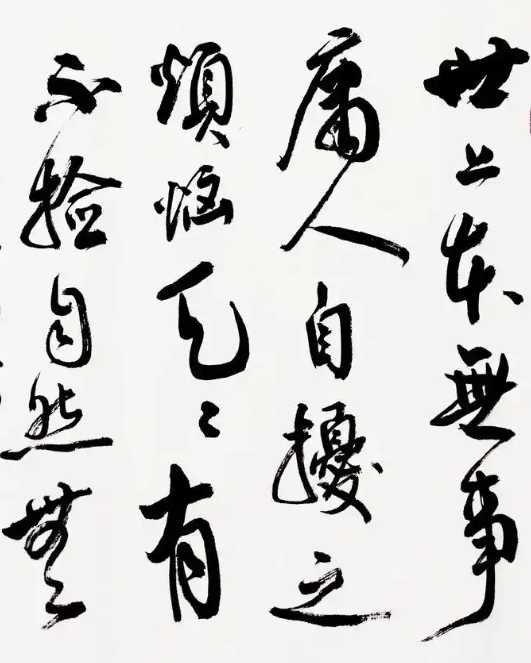 世上本無事
庸人自擾之
煩惱天〻有
不撿自然無